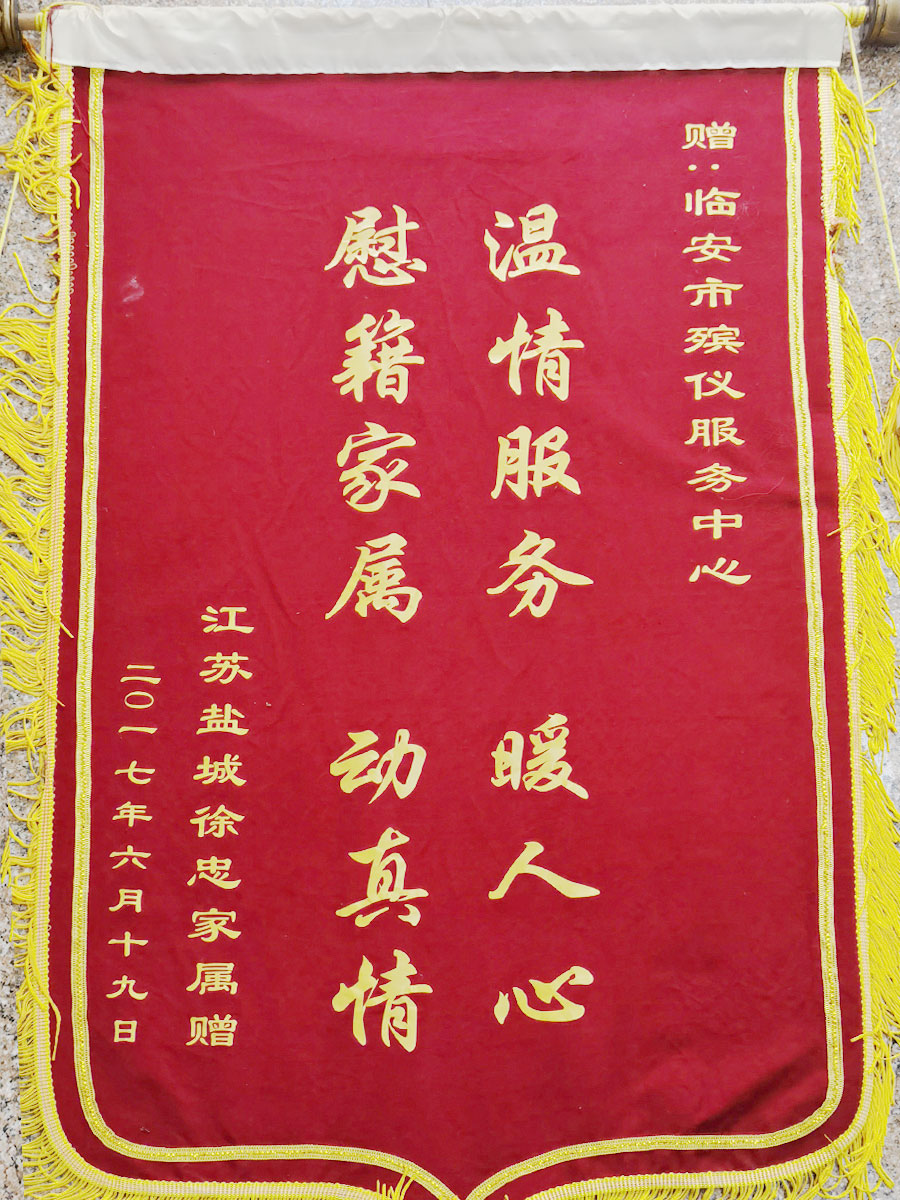 赠:临安市殡仪服务中心
温情服务 暖人心
慰籍家属 动真情
江苏盐城徐忠家属赠
二〇一七年六月十九日